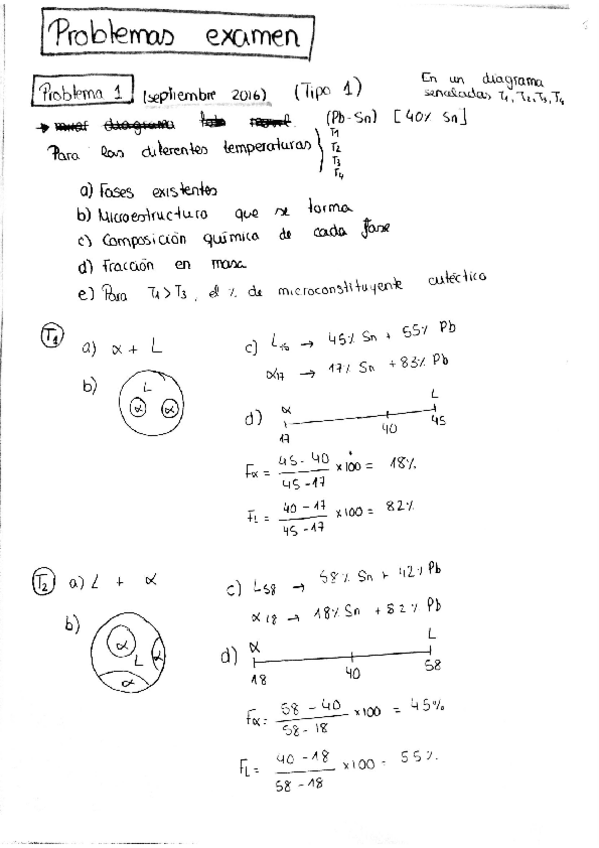 Problemas examen
Problema 1 (septiembre 2016) (Tipo 1)
En un diagrama
señaladas T1, T2, T3, T4
(Pb-Sn) [40% Sn]
Para las diferentes temperaturas
T1
T2
T3
T4
a) Fases existentes
b) Microestructura que se forma
c) Composición química de cada fase
d) Fracción en masa
e) Para T4>T3, el % de microconstituyente eutéctico
T1
a) α + L
b)
L
α α
c) L45 → 45% Sn + 55% Pb
α17 → 17% Sn + 83% Pb
d)
α L
17 40 45
Fα = 45 - 40 / 45 - 17 x100 = 18%
FL = 40 - 17 / 45 - 17 x100 = 82%
T2
a) L + α
b)
α
L α
α
c) L58 → 58% Sn + 42% Pb
α18 → 18% Sn + 82% Pb
d)
α L
18 40 58
Fα = 58 - 40 / 58 - 18 x100 = 45%
FL = 40 - 18 / 58 - 18 x100 = 55%